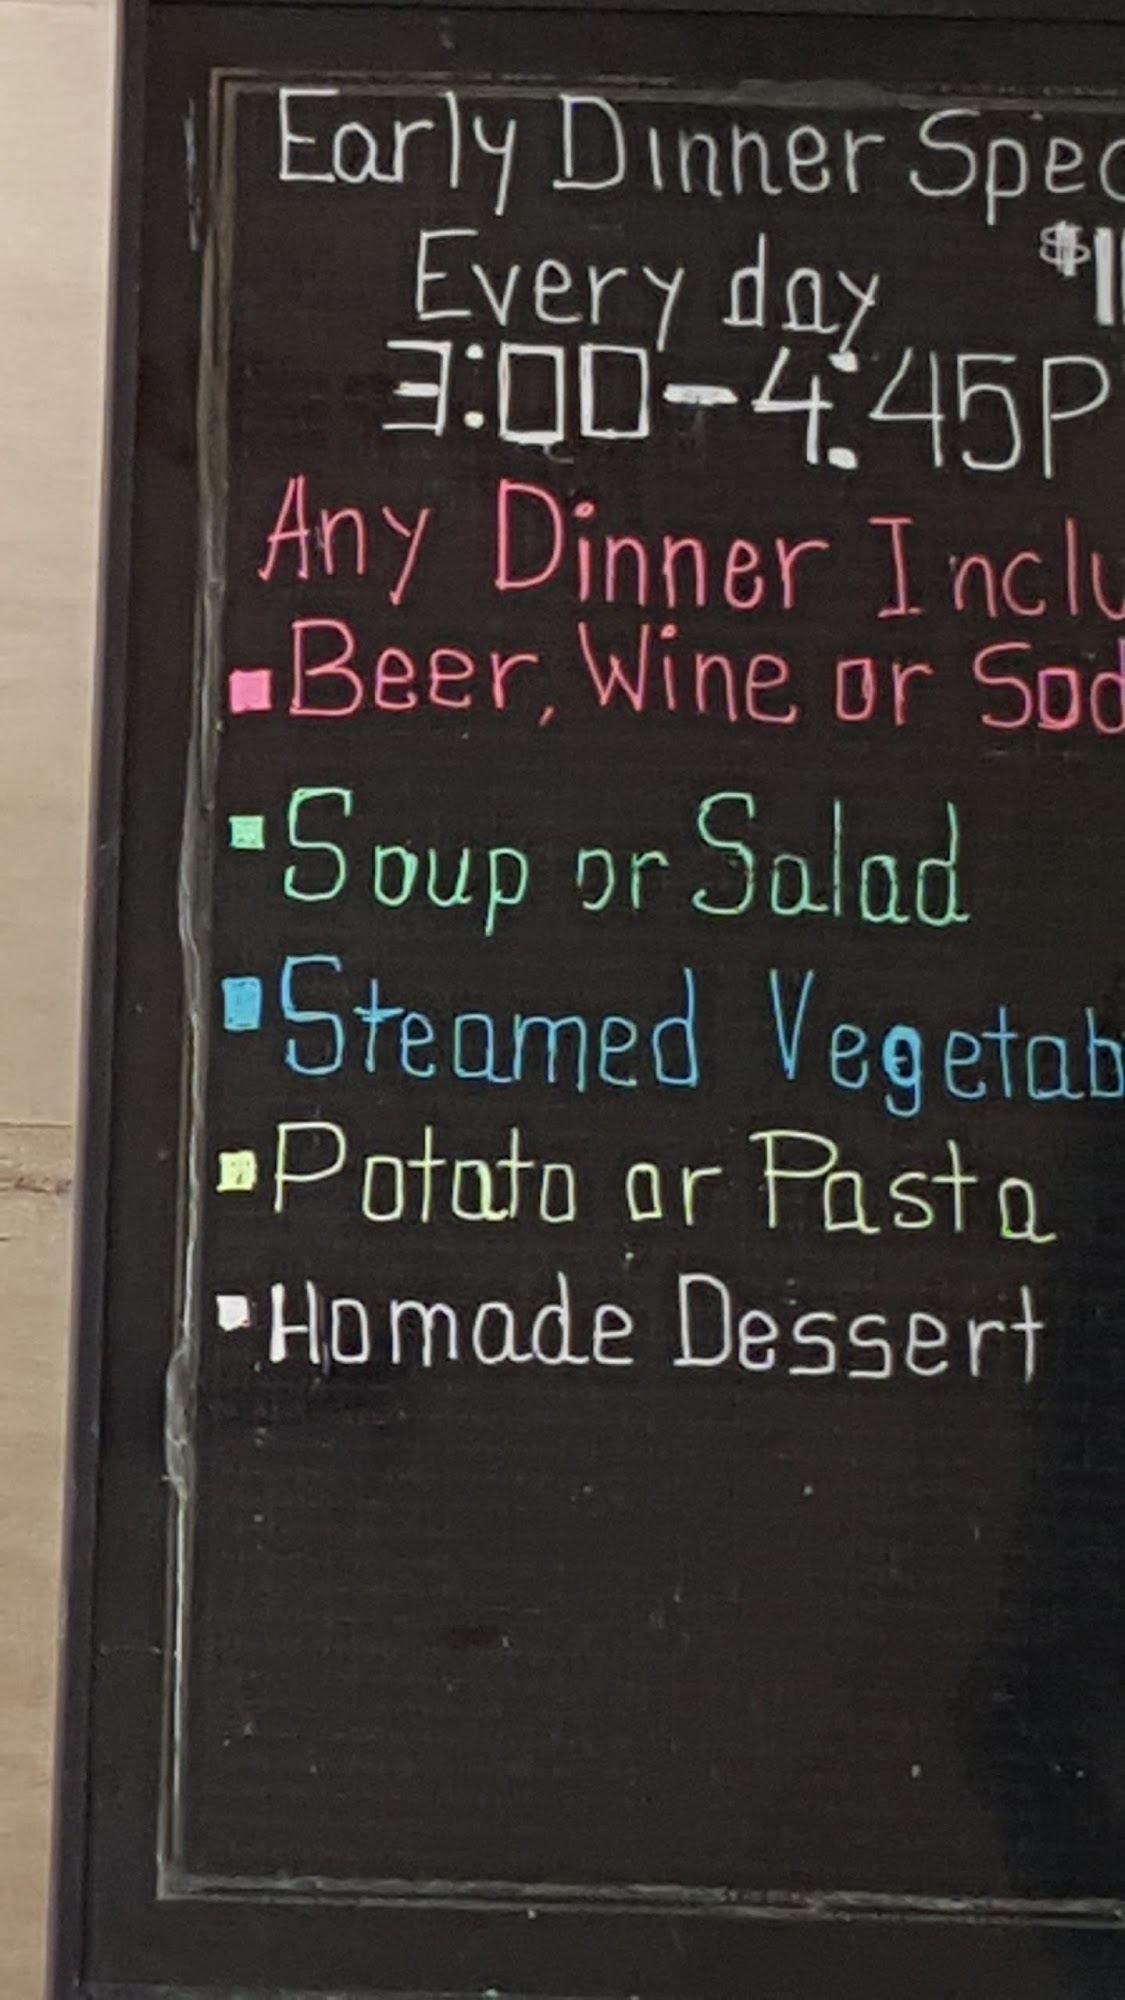 Early Dinner Spec
Every day
3:00-4:45P
Any Dinner Inclu
▪Beer, Wine or Sod
▪Soup or Salad
▪Steamed Vegetab
▪Potato or Pasta
▪Homade Dessert